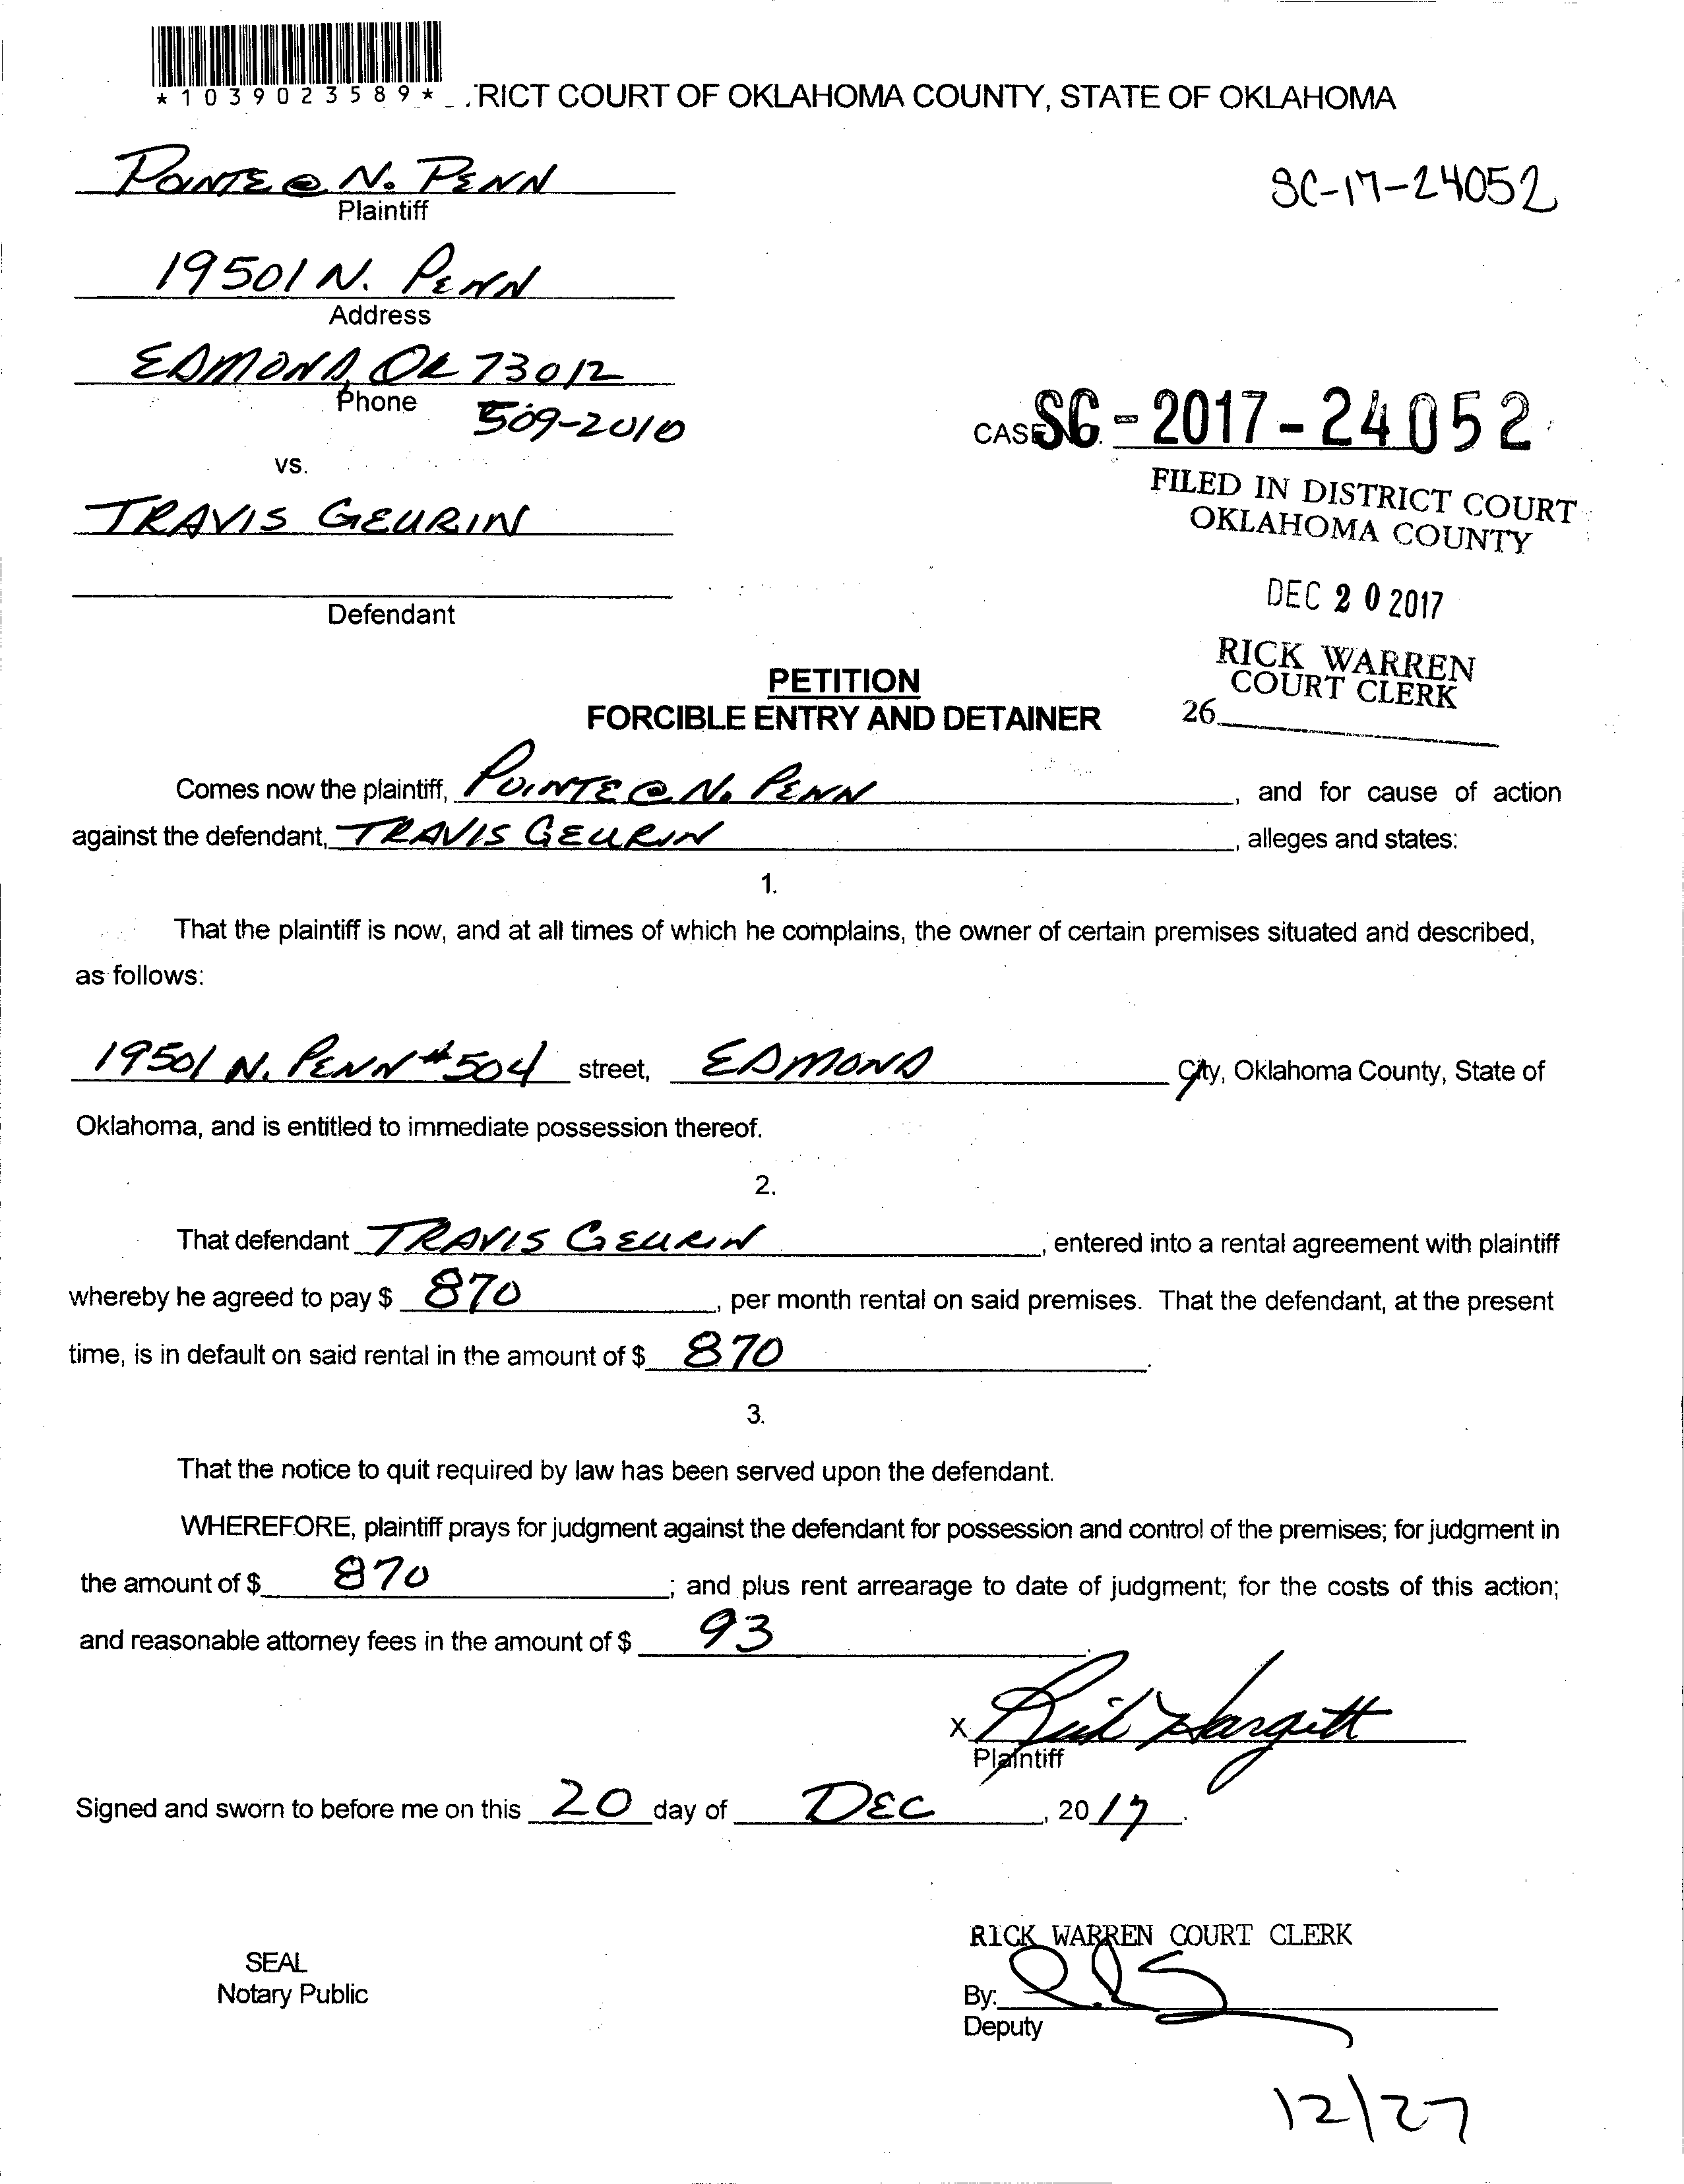 *1039023589* RICT COURT OF OKLAHOMA COUNTY, STATE OF OKLAHOMA
POINTE @ N. PENN
Plaintiff
SC-17-24052
19501 N. PENN
Address
EDMOND, OK 73012
Phone
509-2010
CASE NO. SC-2017-24052
vs.
FILED IN DISTRICT COURT
OKLAHOMA COUNTY
TRAVIS GEURIN
Defendant
DEC 20 2017
RICK WARREN
COURT CLERK
26
PETITION
FORCIBLE ENTRY AND DETAINER
Comes now the plaintiff, POINTE @ N. PENN, and for cause of action
against the defendant, TRAVIS GEURIN, alleges and states:
1.
That the plaintiff is now, and at all times of which he complains, the owner of certain premises situated and described,
as follows:
19501 N. PENN #504 street, EDMOND City, Oklahoma County, State of
Oklahoma, and is entitled to immediate possession thereof.
2.
That defendant TRAVIS GEURIN, entered into a rental agreement with plaintiff
whereby he agreed to pay $ 870, per month rental on said premises. That the defendant, at the present
time, is in default on said rental in the amount of $ 870.
3.
That the notice to quit required by law has been served upon the defendant.
WHEREFORE, plaintiff prays for judgment against the defendant for possession and control of the premises; for judgment in
the amount of $ 870; and plus rent arrearage to date of judgment; for the costs of this action;
and reasonable attorney fees in the amount of $ 93.
X Hargett
Plaintiff
Signed and sworn to before me on this 20 day of DEC, 2017.
RICK WARREN COURT CLERK
SEAL
Notary Public
By:
Deputy
12/27